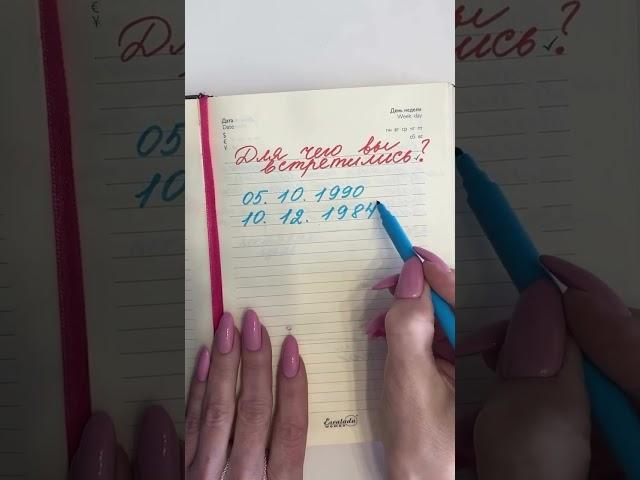 Дата
Date
День недели
Week day
пн вт ср чт пт
сб вс
$
€
¥
Для чего вы
встретились?
05. 10. 1990
10. 12. 1984
Escalada